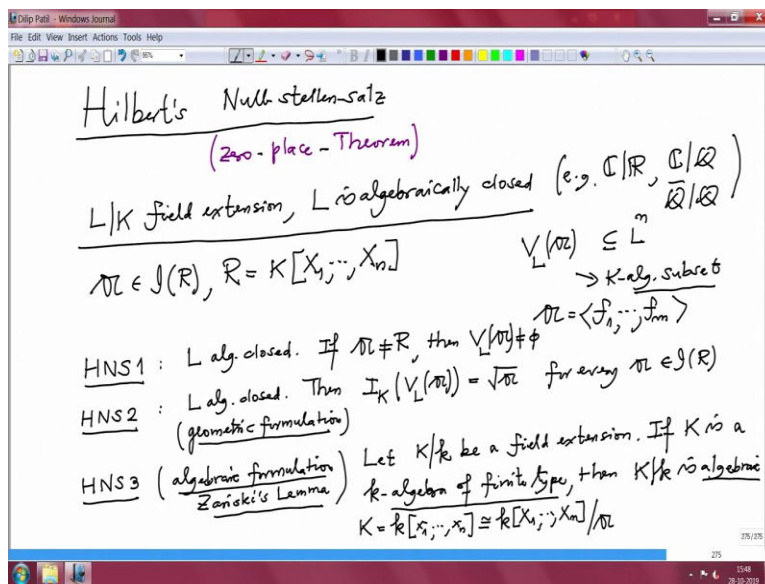 Dilip Patil - Windows Journal
File Edit View Insert Actions Tools Help
Hilbert's Null-stellen-satz
(Zero-place-Theorem)
L|K field extension, L is algebraically closed (e.g. ℂ|ℝ, ℂ|ℚ
ℚ̄|ℚ)
𝔄 ∈ 𝓘(R), R = K[X₁,…,Xₙ] V_L(𝔄) ⊆ Lⁿ
→ K-alg. subset
𝔄 = ⟨f₁,…,fₘ⟩
HNS1 : L alg. closed. If 𝔄 ≠ R, then V_L(𝔄) ≠ ϕ
HNS2 : L alg. closed. Then I_K(V_L(𝔄)) = √𝔄 for every 𝔄 ∈ 𝓘(R)
(geometric formulation)
HNS3 (algebraic formulation Zariski's Lemma) Let K|k be a field extension. If K is a
k-algebra of finite type, then K|k is algebraic
K = k[x₁,…,xₙ] ≅ k[X₁,…,Xₙ]/𝔄
275/275
275
15:48
28-10-2019